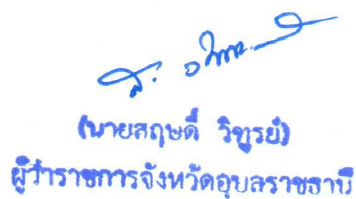 (นายสฤษดิ์ วิฑูรย์)
ผู้ว่าราชการจังหวัดอุบลราชธานี